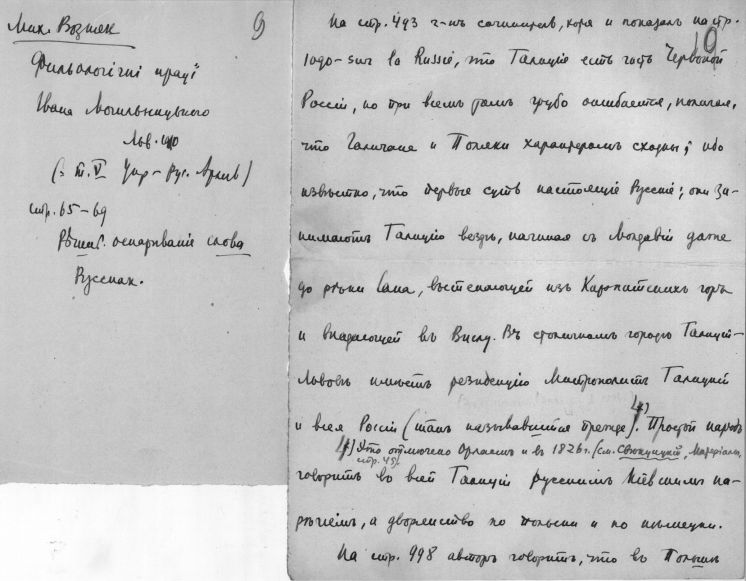 9
Мих. Возняк
Фильольогічні праці
Івана Могильницького
Льв. 1910
(= т. V Укр-рус. Архів)
стр. 65-69
оспаривание слова
Руссняк.
10
На стр. 493 г-нъ сочинитель, хотя и показалъ на стр.
sur la Russie, что Галиція есть часть Червоной
Россіи, но при всемъ томъ грубо ошибается, полагая,
что Галичане и Поляки характеромъ сходны; ибо
извѣстно, что первые суть настоящіе Руссніе; они за-
нимаютъ Галицію вездѣ, начиная съ Молдавіи даже
до рѣки Сана, вытекающей изъ Карпатскихъ горъ
и впадающей въ Вислу. Въ столичномъ городѣ Галиціи-
Львовѣ имѣетъ резиденцію Митрополитъ Галиціи
и всея Россіи (такъ называвшійся прежде).*) Простой народъ
*) Это отмѣчено Орлаемъ и въ 1826 г. (см. Свѣнцицкій, Матеріалы,
стр. 45).
говоритъ во всей Галиціи русскимъ Кіевскимъ на-
рѣчіемъ, а дворянство по польски и по нѣмецки.
На стр. 998 авторъ говоритъ, что въ Польшѣ